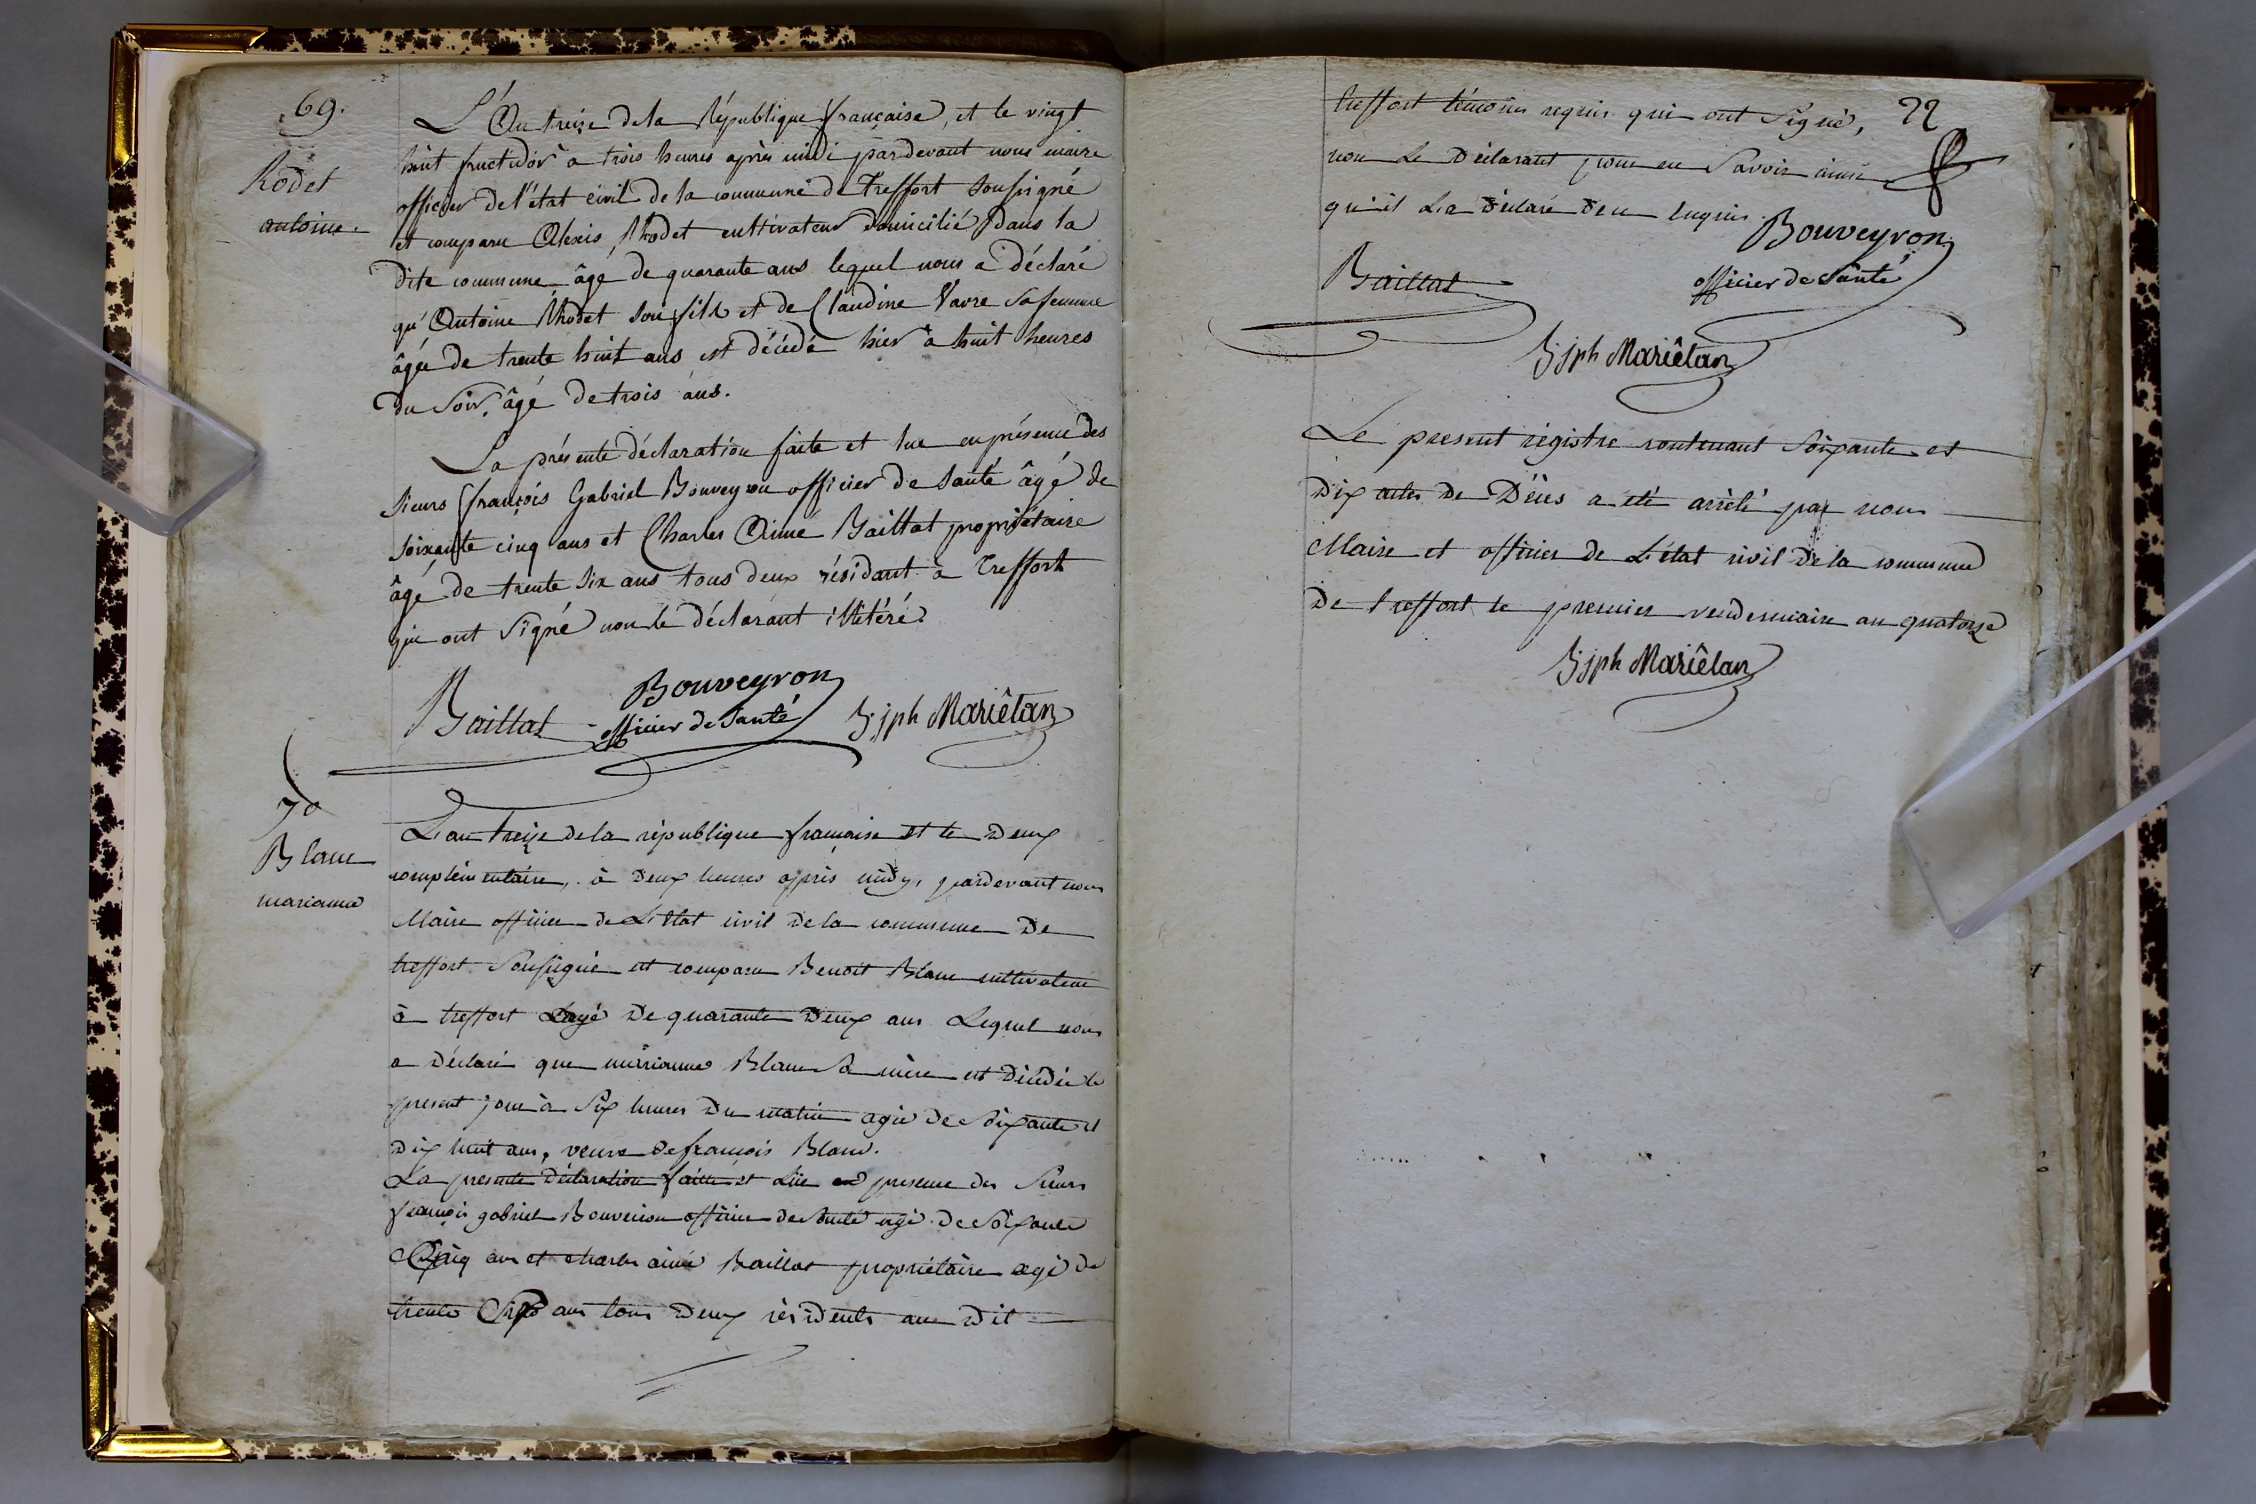 69.
Rodet
antoine.
L'An treize de la République française, et le vingt
huit fructidor à trois heures après midi pardevant nous maire
officier de l'état civil de la commune de Treffort soussigné
est comparu Alexis Rhodet cultivateur domicilié dans la
dite commune âgé de quarante ans lequel nous a déclaré
qu'Antoine Rhodet son fils et de Claudine Vavre sa femme
âgée de trente huit ans est décédé hier à huit heures
du soir, âgé de trois ans.
La présente déclaration faite et lue en présence des
sieurs françois Gabriel Bouveyron officier de santé âgé de
soixante cinq ans et Charles Aimé Baillat propriétaire
âgé de trente six ans tous deux résidant à Treffort
qui ont signé non le déclarant illitéré.
Baillat
Bouveyron
officier de santé
jph Mariêtan
70
Blanc
marianne
L'an treize de la république francaise et le deux
complémentaire, à deux heures apprès midy, pardevant nous
Maire officier de L'Etat civil de la commune De
treffort Soussigné est comparu Benoit Blanc cultivateur
à treffort agé De quarante Deux ans Lequel nous
a Déclaré que marianne Blanc sa mère est Décédée le
present jour à Six heures Du matin agée de Soixante et
Dix huit ans, veuve de francois Blanc.
La presente déclaration faitte et Lüe en presence des Sieurs
francois gabriel Bouveiron officier de santé agé de Soixante
Cinq ans et charles aimé Baillat propriétaire agé de
trente Six ans tous Deux résidents au dit
22
treffort témoins requis qui ont Signé,
non Le Déclarant pour ne Savoir ainsi
qu'il L'a déclaré De ce Enquis.
Bouveyron
officier de Santé
Baillat
jph Mariêtan
Le present régistre contenant Soixante et
Dix actes De Décès a été arrêté par nous
Maire et officier de L'état civil De la commune
De treffort le premier vendemiaire an quatorze
jph Mariêtan